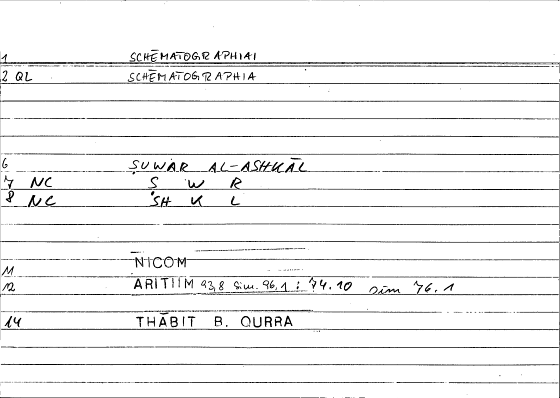 1 SCHĒMATOGRAPHIAI
2 QL SCHĒMATOGRAPHIA
6 ṢUWAR AL-ASHKĀL
7 NC Ṣ W R
8 NC SH K L
NICOM
11
12 ARITIIM 93,8 sim. 96.1 : 74.10 sim 76.1
14 THĀBIT B. QURRA